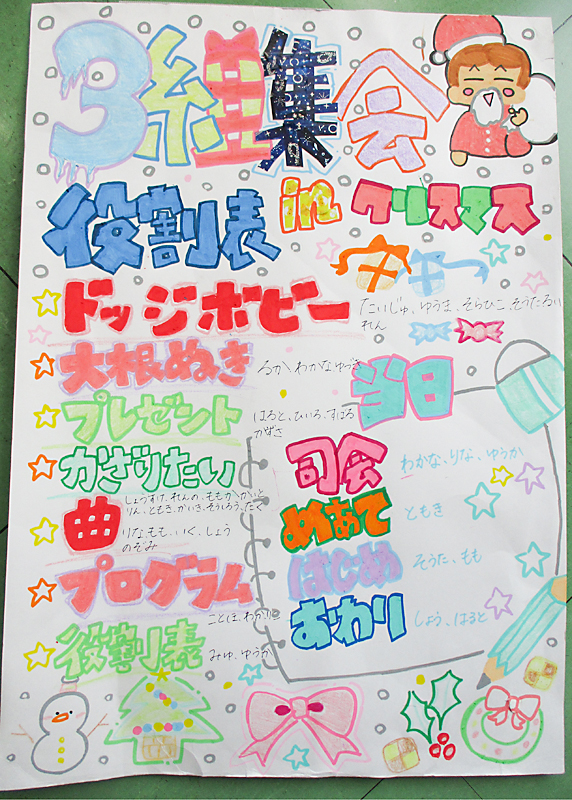 3組集会
役割表 in クリスマス
ドッジボビー
たいじゅ、ゆうま、そらひこ、そうたろう
れん
大根ぬき
るか わかな ゆづき
プレゼント
はると、ひいろ、すばる
かずさ
かざりたい
曲
しょうすけ、れんの、ももか、かいと
りん、ともき、かいき、そういろう、たく
りな、もも、いく、しょう
のぞみ
プログラム
ことは、わかな
役割表
みゆ、ゆうか
当日
司会
わかな、りな、ゆうか
めあて
ともき
はじめ
そうた、もも
おわり
しょう、はると